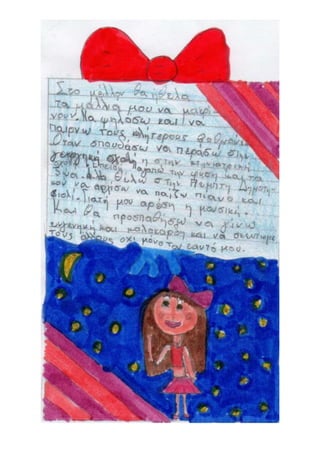 Στο μέλλον θα ήθελα
τα μαλλιά μου να μακρ
νουν. Να ψηλόσω και να
παίρνω τους καλήτερους βαθμους
Όταν σπουδάσω να περάσω στην
γεωργική σχολή η στην κτηνιατρική
επειδή αγαπώ την φύση και τα
ζώα. Θα ήθελα στην Πέμπτη Δημοτικ
ου να αρχίσω να παίζω πιάνο και
βιολί. Γιατή μου αρέση η μουσική.
Και θα προσπαθήσω να γίνω
ευγενική και καλόκαρδη και να σκέυτομε
τους άλλους οχι μονο τον εαυτό μου.